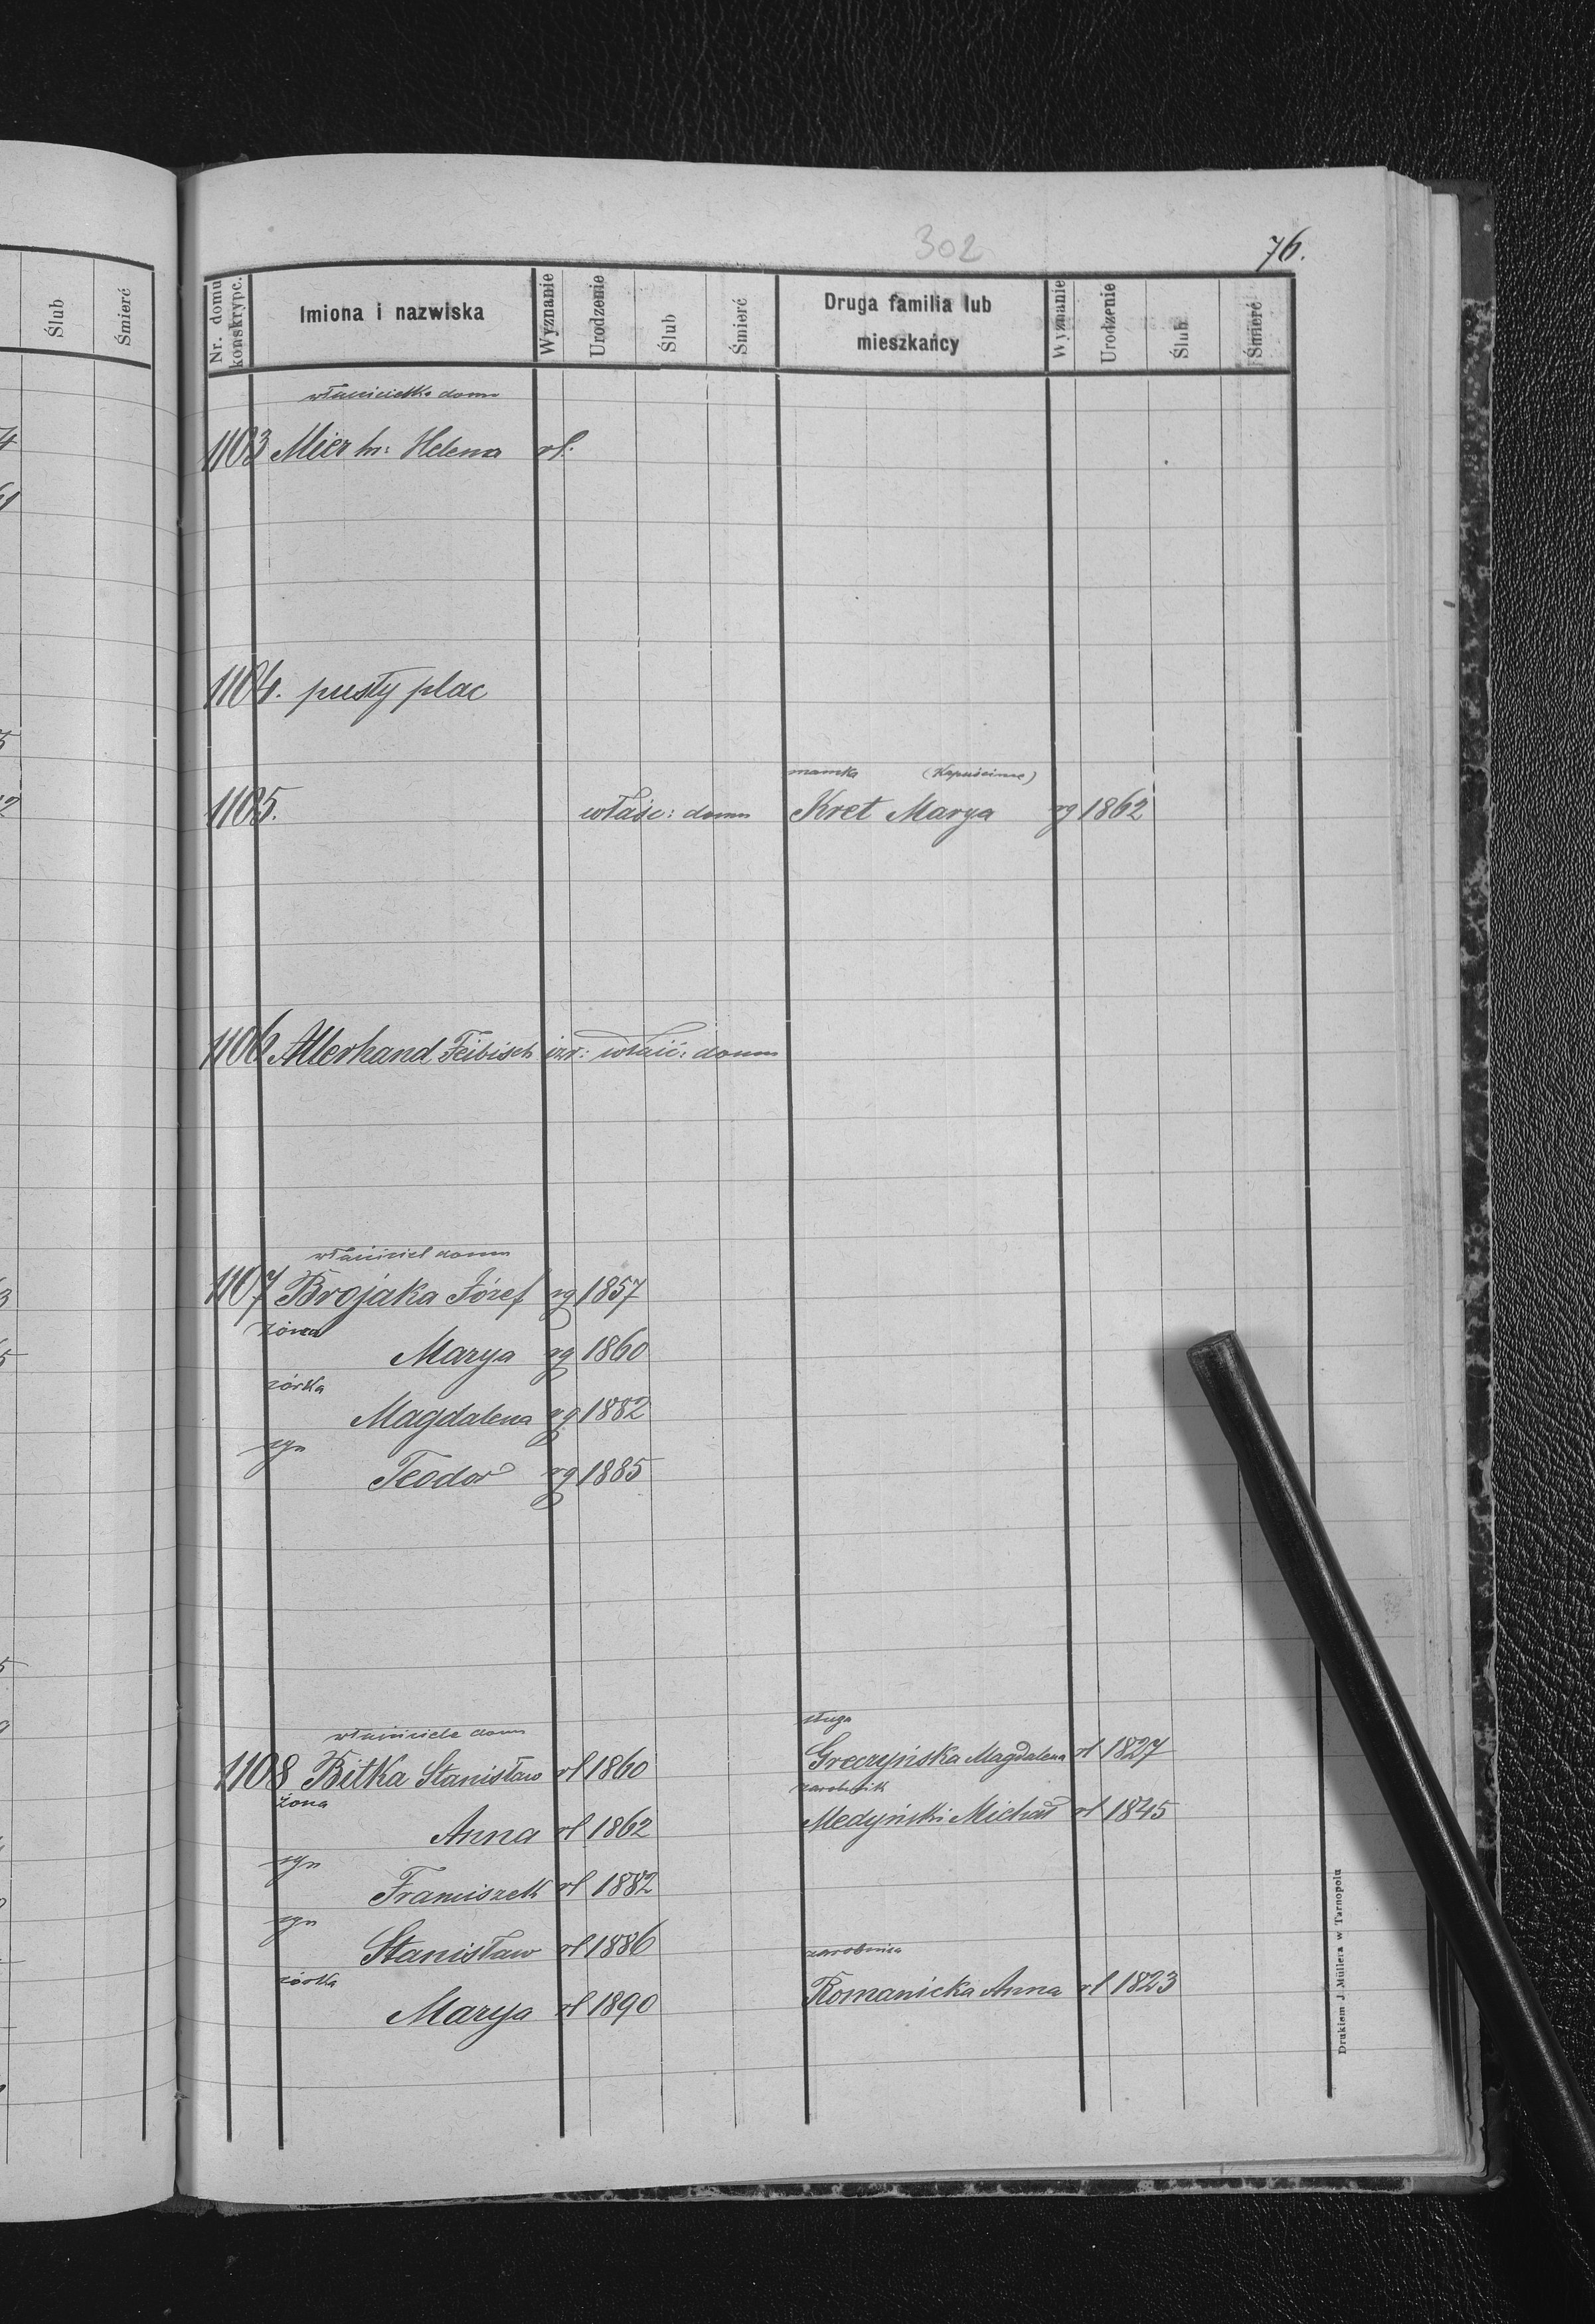 302
76.
Ślub Śmierć
Nr. domu konskrypc. Imiona i nazwiska Wyznanie Urodzenie Ślub Śmierć Druga familia lub mieszkańcy Wyznanie Urodzenie Ślub Śmierć
właścicielka domu
1103 Mier hr: Helena rł.
1104. pusty plac
mamka (Kapuścinne)
1105. właśc: domu Kret Marya rg 1862
1106 Allerhand Feibisch izr: właśc: domu
właściciel domu
1107 Brojaka Józef rg 1857
żona
Marya rg 1860
córka
Magdalena rg 1882
syn
Teodor rg 1885
sługa
właściciele domu
1108 Bitka Stanisław rł 1860 Greczyńska Magdalena rł 1827
żona zarobnik
Anna rł 1862 Medyński Michał rł 1845
syn
Franciszek rł 1882
syn
Stanisław rł 1886
zarobnica
córka
Marya rł 1890 Romanicka Anna rł 1823
Drukiem J. Müllera w Tarnopolu